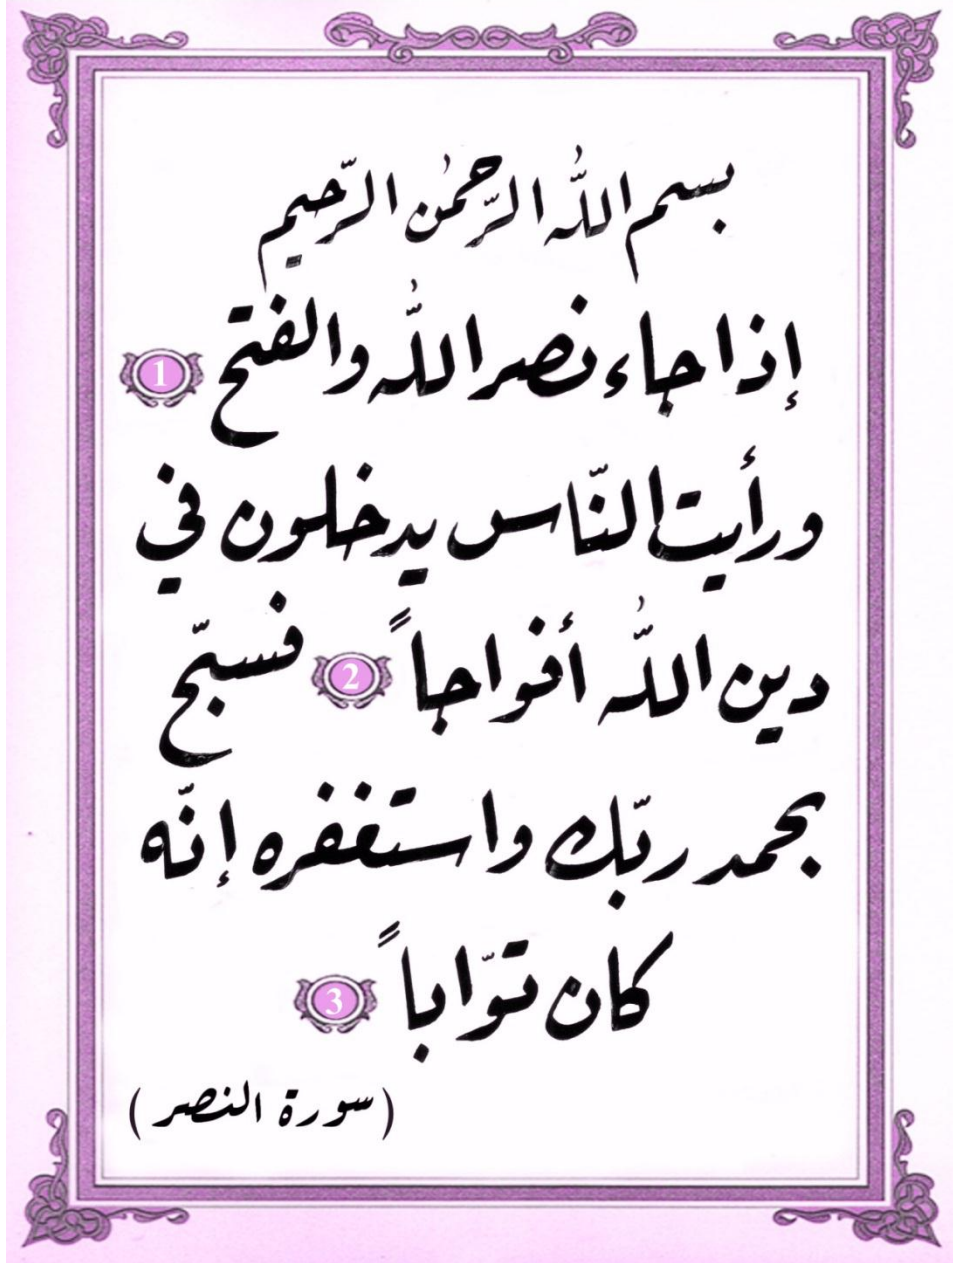 بسم اللّٰه الرّحمٰن الرّحيم
إذا جاء نصر اللّٰه والفتح 1
ورأيت النّاس يدخلون في
دين اللّٰه أفواجاً 2 فسبّح
بحمد ربّك واستغفره إنّه
كان توّاباً 3
(سورة النصر)